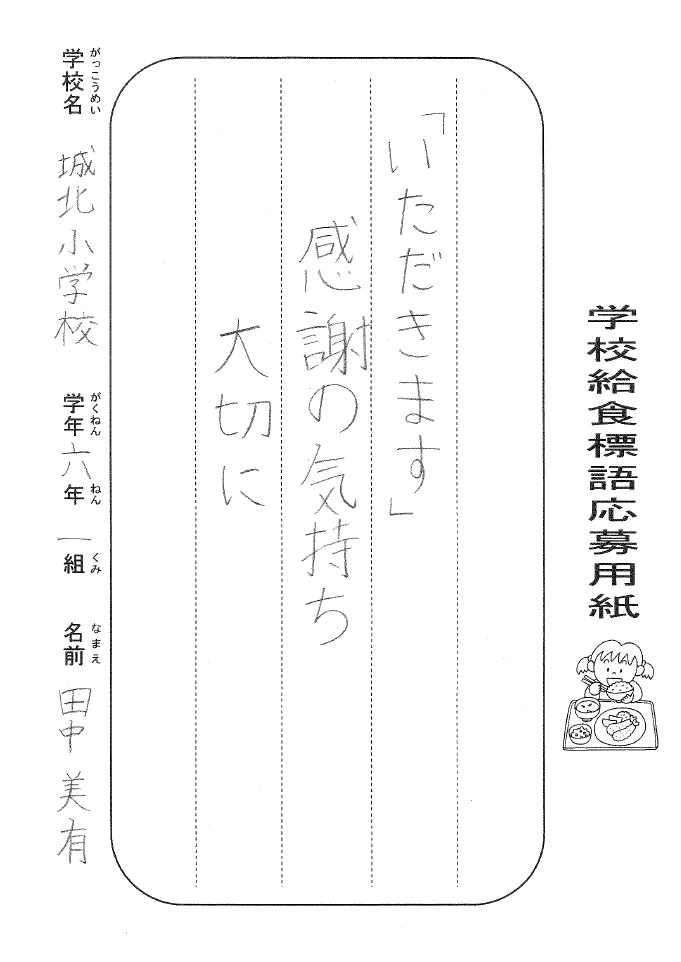 学校給食標語応募用紙
「いただきます」
感謝の気持ち
大切に
がっこうめい がくねん ねん くみ なまえ
学校名 城北小学校 学年 六年 一組 名前 田中 美有